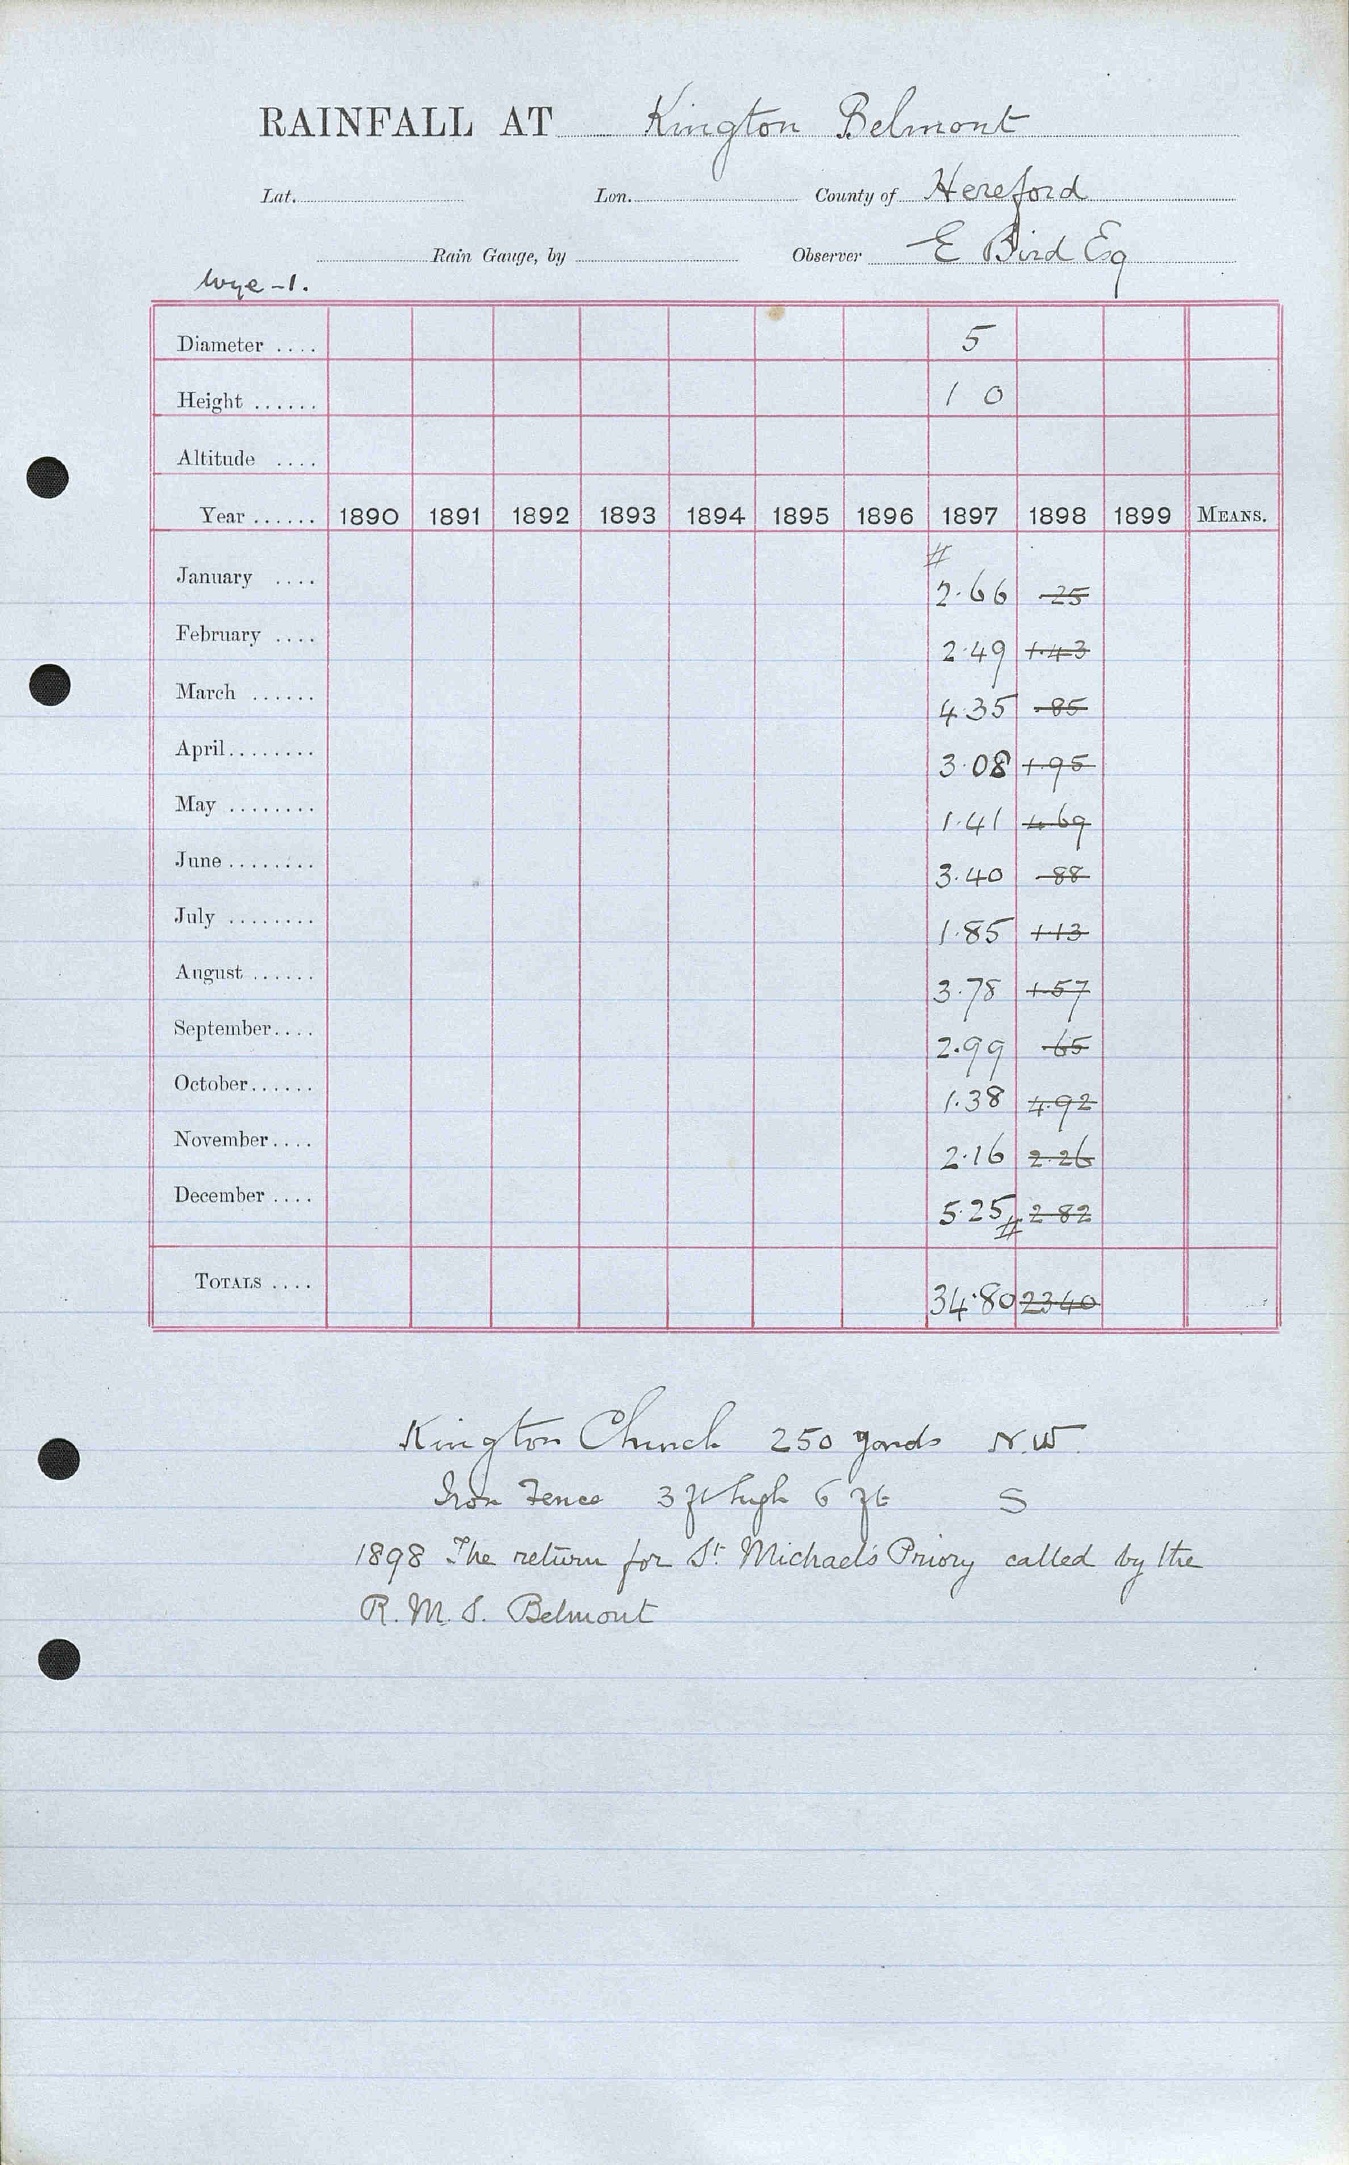 RAINFALL AT Kington Belmont
Lat. Lon. County of Hereford
Rain Gauge, by Observer E Bird Esq
Wye - 1.
Diameter .... 5
Height ...... 1 0
Altitude ....
Year ...... 1890 1891 1892 1893 1894 1895 1896 1897 1898 1899 MEANS.
#
January .... 2.66 .25
February .... 2.49 1.43
March ...... 4.35 .85
April ........ 3.08 1.95
May ........ 1.41 4.69
June ........ 3.40 .88
July ........ 1.85 1.13
August ...... 3.78 1.57
September .... 2.99 .65
October ...... 1.38 4.92
November .... 2.16 2.26
December .... 5.25 # 2.82
TOTALS .... 34.80 23.40
Kington Church 250 yards N.W.
Iron Fence 3 ft high 6 ft S
1898 The return for St. Michael's Priory called by the
R. M. S. Belmont